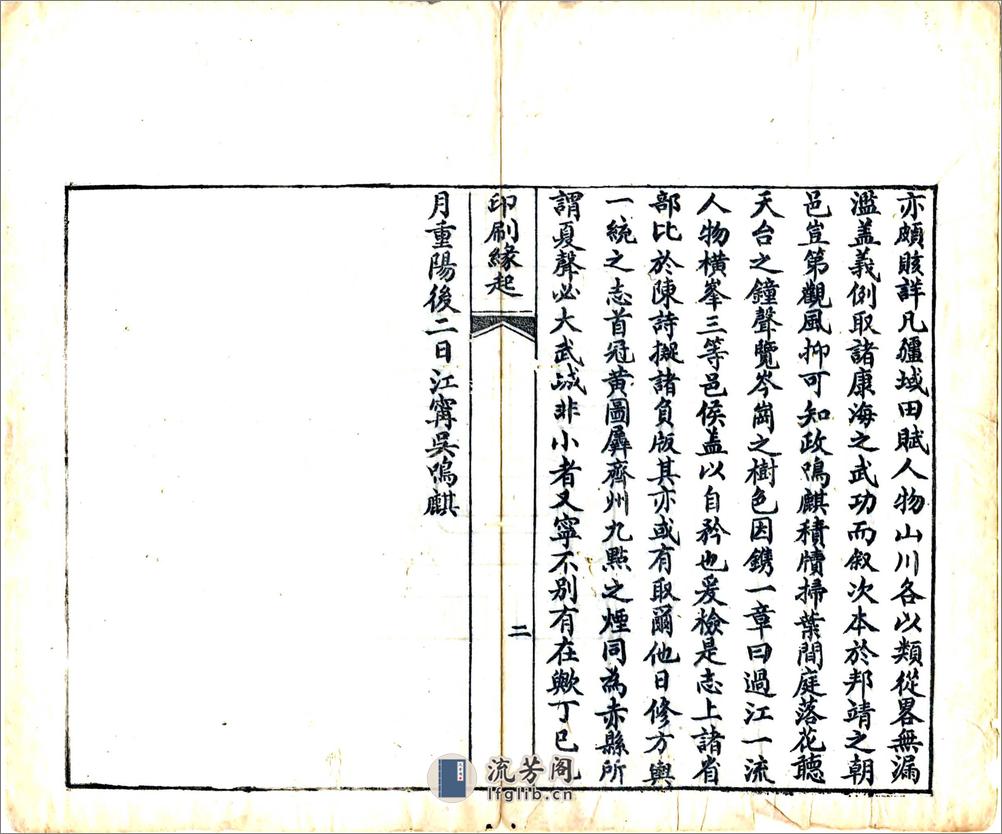 亦頗賅詳凡疆域田賦人物山川各以類從畧無漏
濫盖義例取諸康海之武功而叙次本於邦靖之朝
邑豈第觀風抑可知政鳴麒積牘掃葉間庭落花聽
天台之鐘聲覽岑崗之樹色因鐫一章曰過江一流
人物橫峯三等邑侯盖以自矜也爰檢是志上諸省
部比於陳詩擬諸負版其亦或有取爾他日修方輿
一統之志首冠黃圖彞齊州九點之煙同為赤縣所
謂夏聲必大武城非小者又寧不別有在歟丁巳九
印刷緣起
二
月重陽後二日江甯吳鳴麒
流芳阁
lfglib.cn